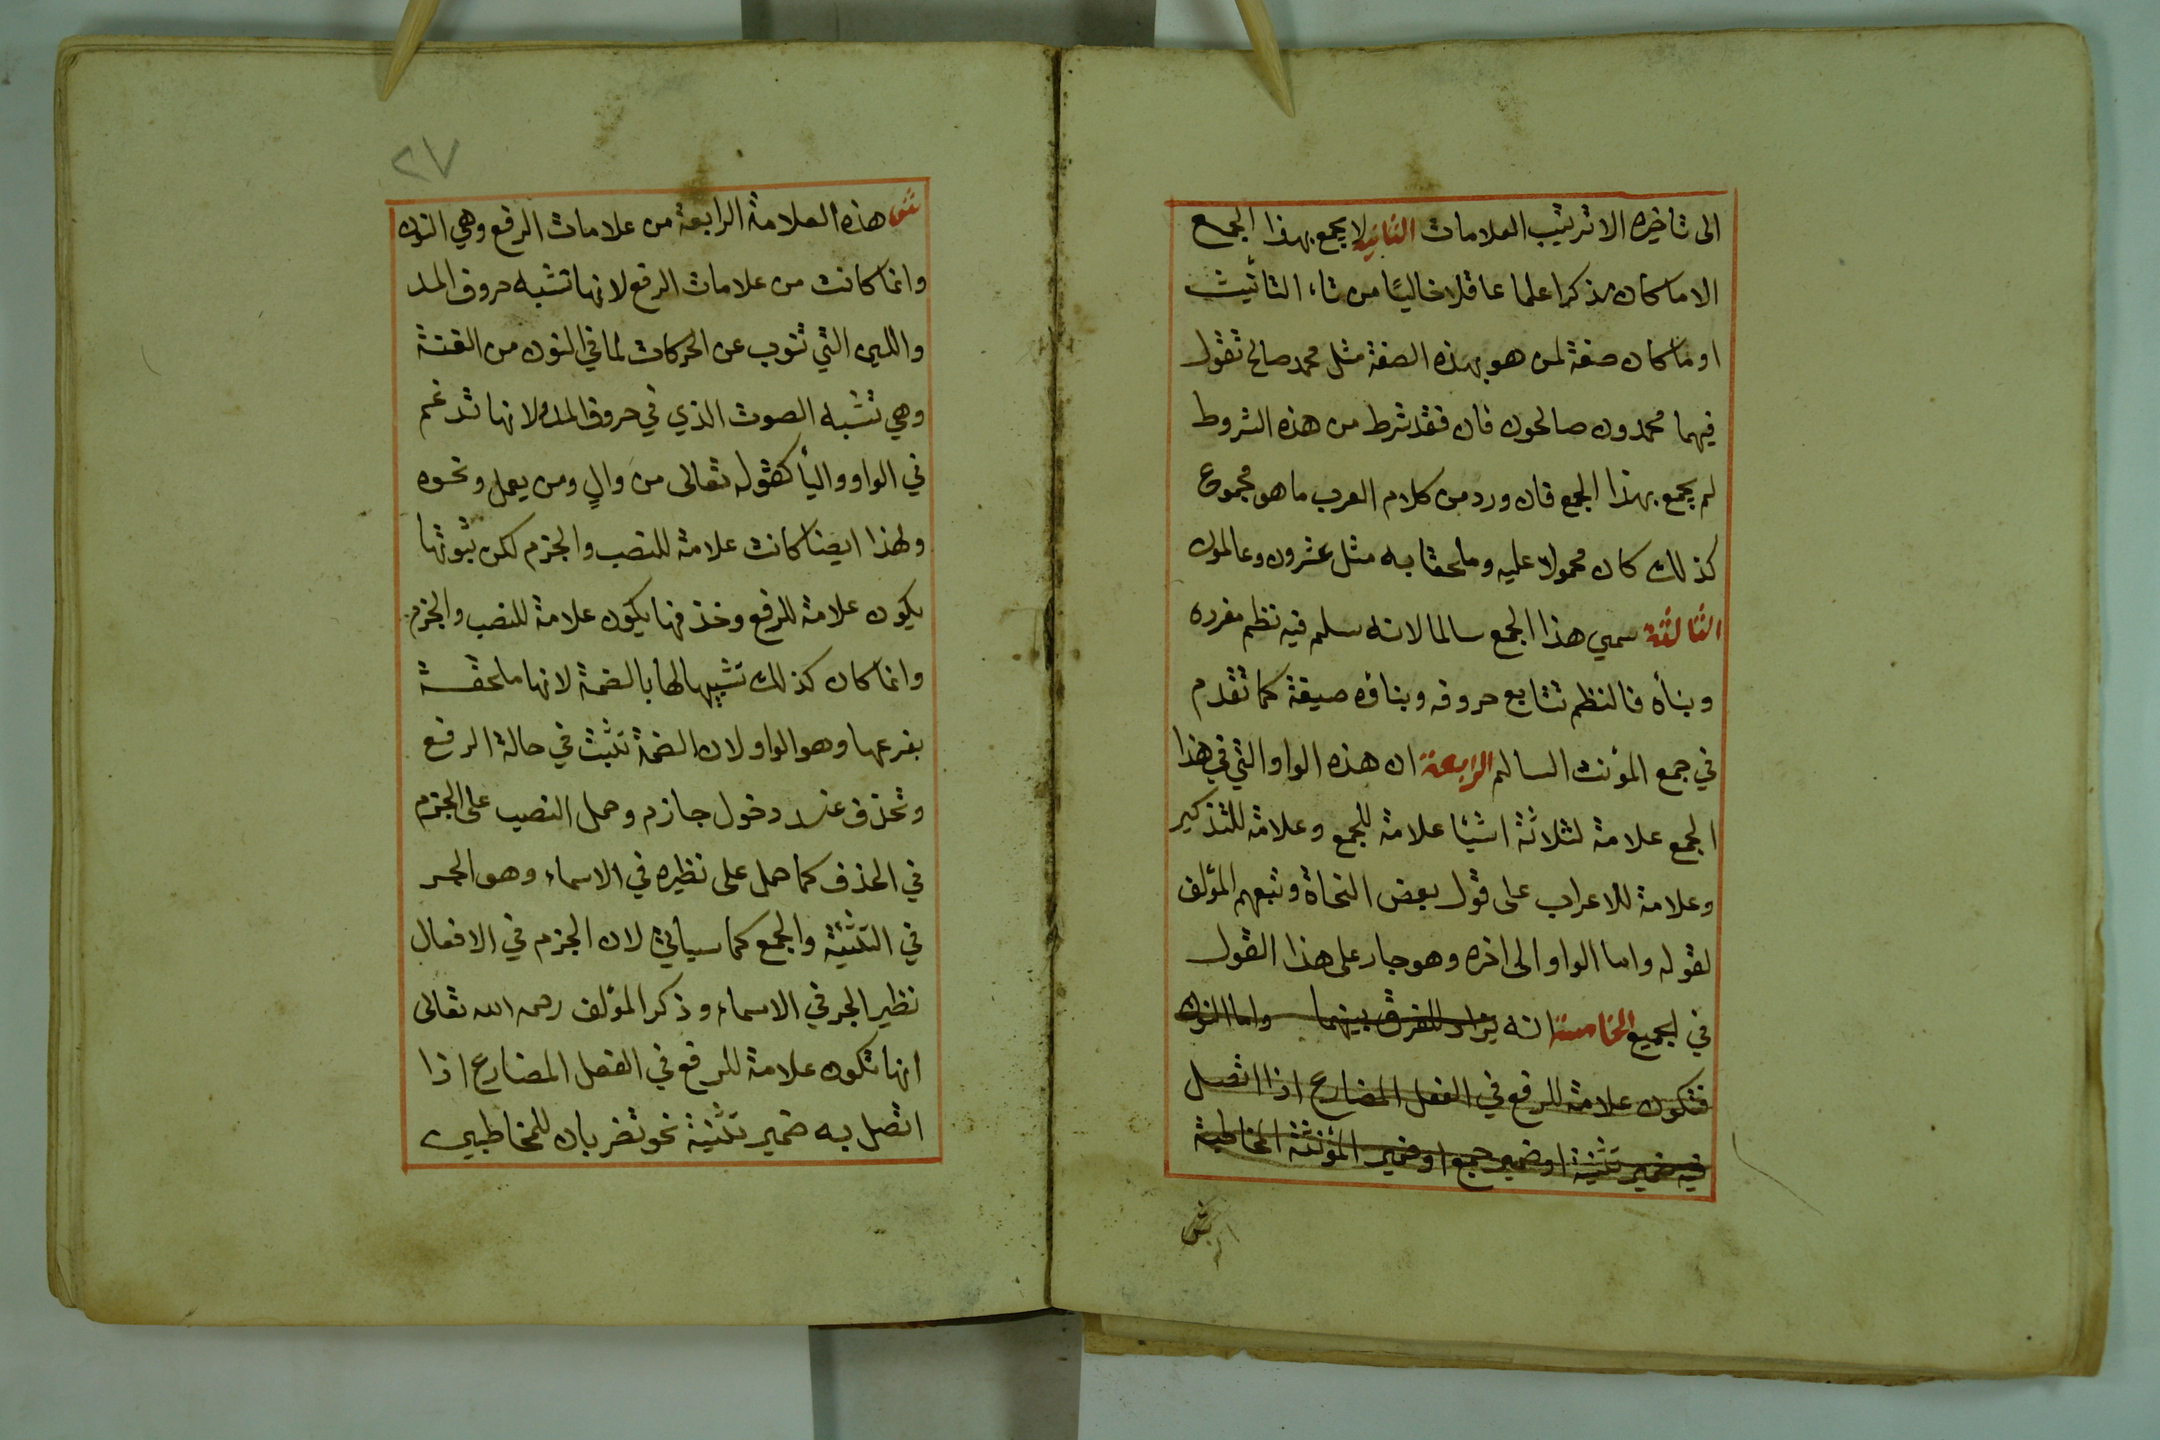 الى تاخيره الا ترتيب العلامات الثانية لا يجمع بهذا الجمع
الا ما كان مذكرا علما عاقلا خاليًا من تاء التانيث
او ما كان صفة لمن هو بهذه الصفة مثل محمد صالح تقول
فيهما محمدون صالحون فان فقد شرط من هذه الشروط
لم يجمع بهذا الجمع فان ورد من كلام العرب ما هو مجموع
كذلك كان محمولا عليه وملحقا به مثل عشرون وعالمون
الثالثة سمي هذا الجمع سالما لانه سلم فيه نظم مفرده
وبناؤه فالنظم تتابع حروفه وبناؤه صيغة كما تقدم
في جمع المؤنث السالم الرابعة ان هذه الواو التي في هذا
الجمع علامة لثلاثة اشيا علامة للجمع وعلامة للتذكير
وعلامة للاعراب على قول بعض النحاة وتبعهم المؤلف
لقوله واما الواو الى اخره وهو جار على هذا القول
في الجميع الخامسة انه يزاد للفرق بينهما واما النون
فتكون علامة للرفع في الفعل المضارع اذا اتصل
فيه ضمير تثنية او ضمير جمع او ضمير المؤنثة المخاطبة
٢٧
ش هذه العلامة الرابعة من علامات الرفع وهي النون
وانما كانت من علامات الرفع لانها تشبه حروف المد
واللين التي تنوب عن الحركات لما في النون من الغنة
وهي تشبه الصوت الذي في حروف المد ولانها تدغم
في الواو واليأ كقوله تعالى من وَالٍ ومن يعمل ونحوه
ولهذا ايضا كانت علامة للنصب والجزم لكن ثبوتها
يكون علامة للرفع وحذفها يكون علامة للنصب والجزم
وانما كان كذلك تشبيها لها بالضمة لانها ملحقة
بفرعها وهو الواو ولان الضمة تثبت في حالة الرفع
وتحذف عند دخول جازم وحمل النصب على الجزم
في الحذف كما حمل على نظيره في الاسماء وهو الجر
في التثنية والجمع كما سياتي لان الجزم في الافعال
نظير الجر في الاسماء وذكر المؤلف رحمه الله تعالى
انها تكون علامة للرفع في الفعل المضارع اذا
اتصل به ضمير تثنية نحو تضربان للمخاطبين